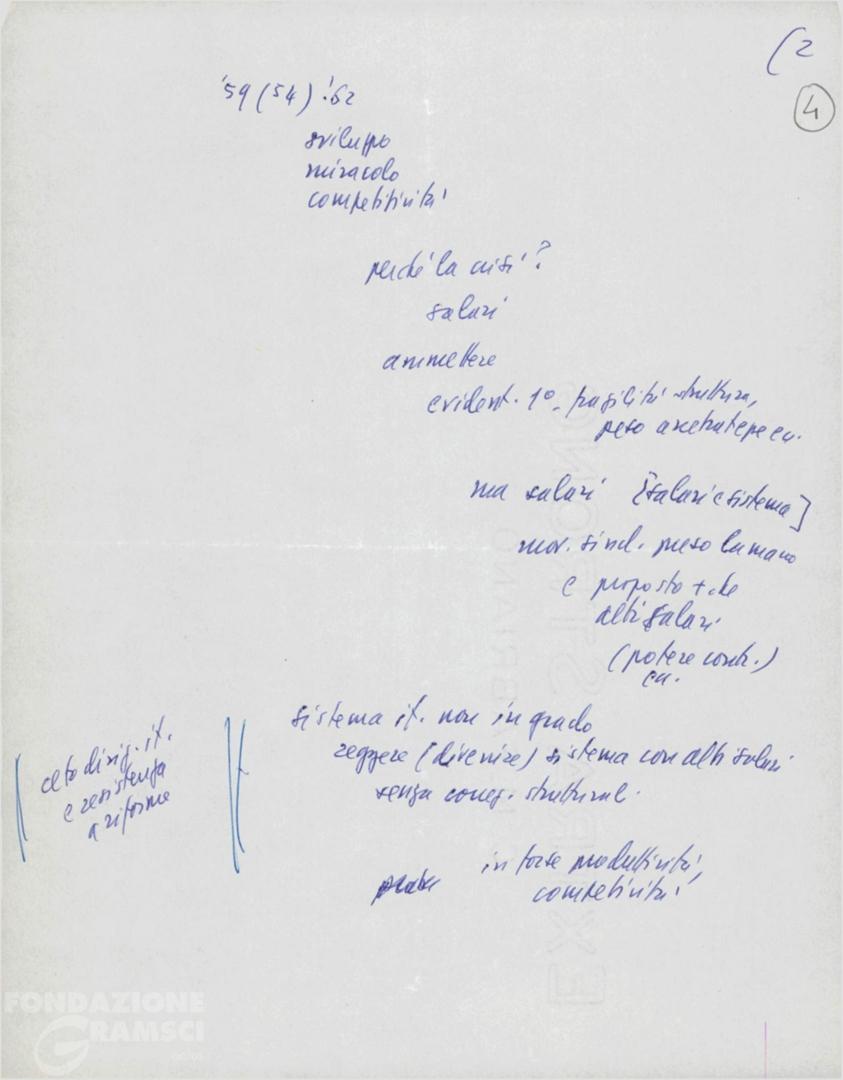 (2
4
'59 (54) '.62
sviluppo
miracolo
competitività
perché la crisi?
salari
ammettere
evident. 1º. fragilità struttura,
peso arretratezze ecc.
ma salari [salari e sistema]
mov. sind. preso la mano
e proposto + che
alti salari
(potere contr.)
ecc.
sistema it. non in grado
reggere (divenire) sistema con alti salari
senza conseg. struttural.
ceto dirig. it.
e resistenza
a riforme
in forse produttività,
competitività
FONDAZIONE
GRAMSCI